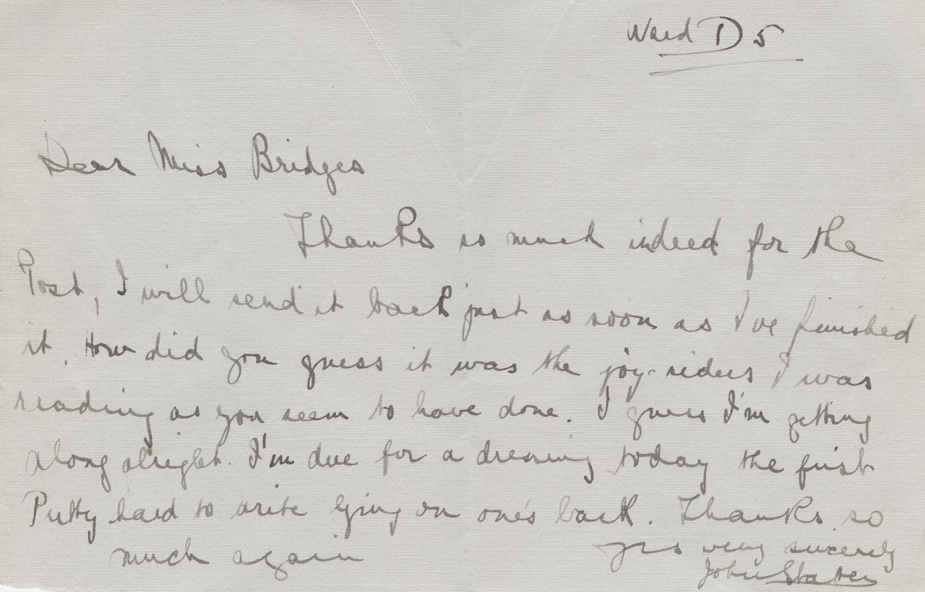 Ward D 5
Dear Miss Bridges
Thanks so much indeed for the
Post, I will send it back just as soon as I've finished
it. How did you guess it was the joy-riders I was
reading as you seem to have done. I guess I'm getting
along alright. I'm due for a dressing today the first
Putty hard to write lying on one's back. Thanks so
much again
yrs very sincerely
John